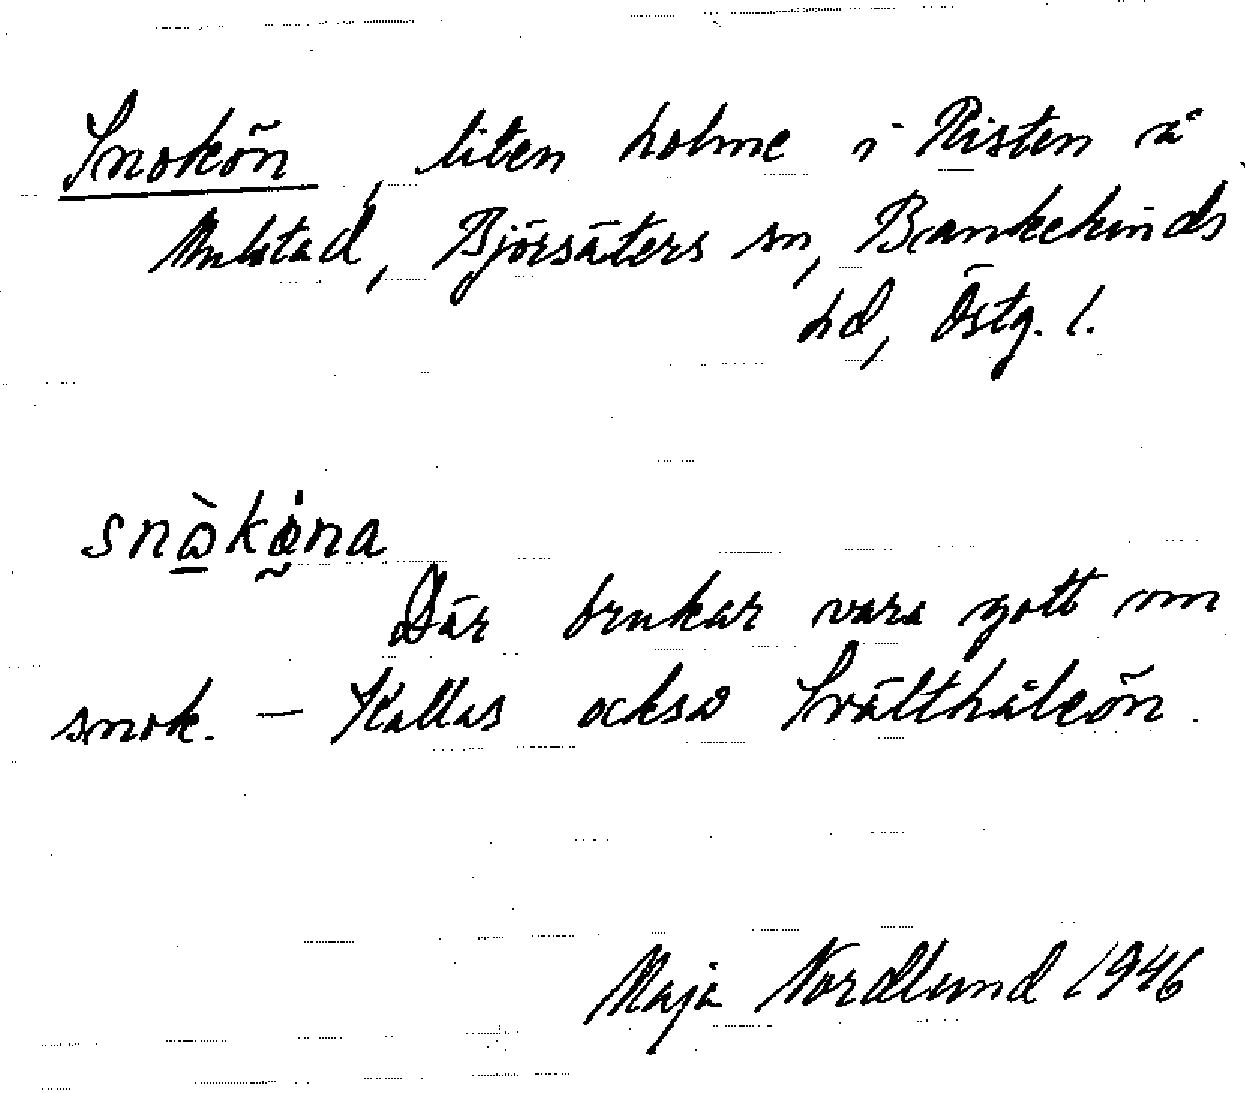 Snokön, liten holme i Risten å
Mulstad, Björsäters sn, Bankekinds
hd, Östg. l.
snɷ̀kø̇na
Där brukar vara gott om
snok. – Kallas också Svälthålsön.
Maja Nordlund 1946